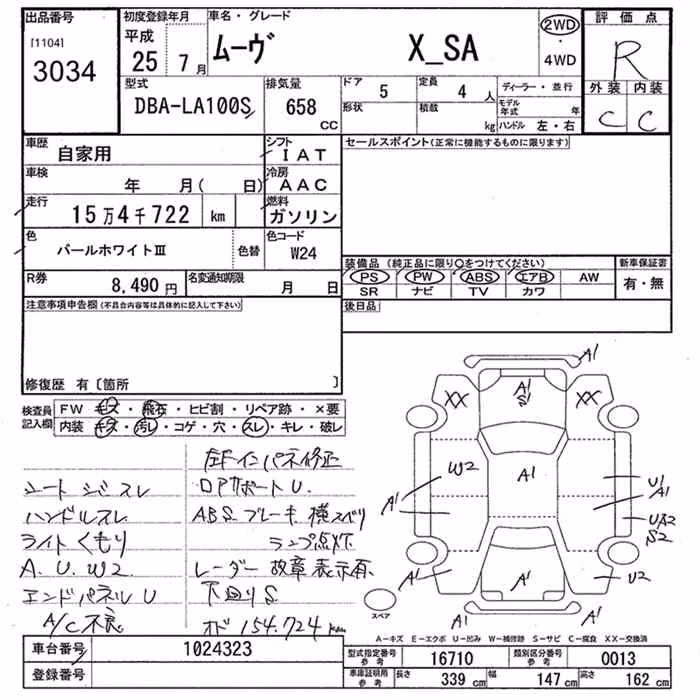 出品番号
[1104]
3034
初度登録年月
平成
25 7月
車名・グレード
ムーヴ X_SA
2WD
・
4WD
評価点
R
外装 内装
C C
型式
DBA-LA100S
排気量
658
CC
ドア 5
定員 4 人
形状
積載 kg
ディーラー・並行
モデル年式 年
ハンドル 左・右
車歴
自家用
シフト
IAT
セールスポイント(正常に機能するものに限ります)
車検
年 月( 日)
冷房
AAC
走行
15万4千722 km
燃料
ガソリン
色
パールホワイトⅢ 色替
色コード
W24
装備品(純正品に限り○をつけてください)
新車保証書
PS PW ABS エアB AW
有・無
SR ナビ TV カワ
R券
8,490 円
名変通知期限
月 日
後日品
注意事項申告欄(不具合内容等は具体的に記入して下さい)
修復歴 有〔箇所 〕
検査員記入欄
FW キズ・飛石・ヒビ割・リペア跡・×要
内装 キズ・汚レ・コゲ・穴・スレ・キレ・破レ
左Fインパネ修正
シートシミスレ
ロアサポートU.
ハンドルスレ
ABS ブレーキ 横スベリ
ライトくもり
ランプ点灯
A. U. W2
レーダー故障表示有
エンドパネルU
下回りS
A/C不良
オド 154.724km
A1
XX
A1
S
XX
W2
A1
U1
A1
A1
UA2
S2
A1
A1
U2
A1
A1
スペア
A−キズ E−エクボ U−凹み W−補修跡 S−サビ C−腐食 XX−交換済
車台番号
1024323
登録番号
型式指定番号
参考
16710
類別区分番号
参考
0013
車庫証明用
参考
長さ 339 cm
幅 147 cm
高さ 162 cm